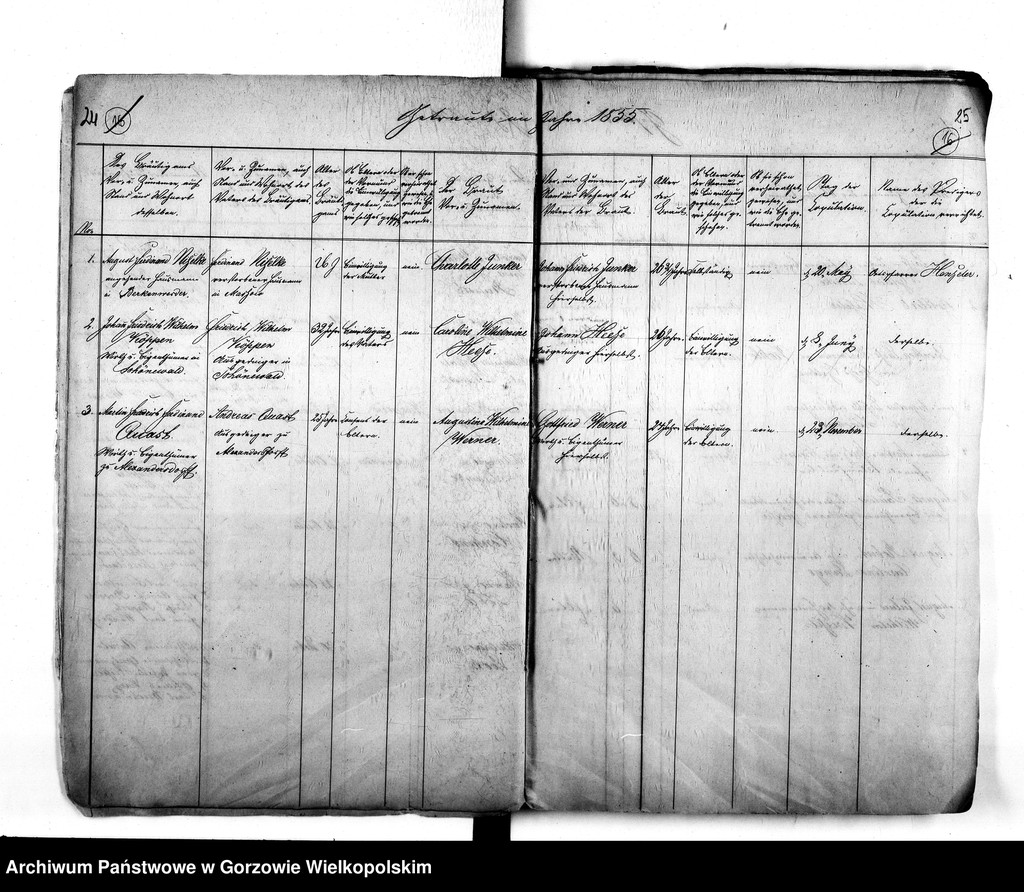 24
16
Getraute im Jahre 1855.
25
16
No.
Des Bräutigams
Vor- u. Zunamen, auch
Stand und Wohnort
desselben.
Vor- u. Zunamen, auch
Stand und Wohnort des
Vaters des Bräutigams.
Alter
des
Bräuti-
gams
Ob Eltern oder
der Vormund
die Einwilligung
gegeben und
wie solches gesch.
Der Braut
Vor- u. Zunamen.
Vor- und Zunamen, auch
Stand und Wohnort des
Vaters der Braut.
Alter
der
Braut.
Ob Eltern oder
der Vormund
die Einwilligung
gegeben, und
wie solches ge-
schehen.
Ob sie schon
verheirathet
gewesen, und
wie die Ehe ge-
trennt worden.
Tag der
Copulation.
Name des Predigers
der die
Copulation verrichtet.
1.
August Ferdinand
angehender Hausmann
in Berkenwerder.
Ferdinand
verstorbener Hausmann
in
26 J
Einwilligung
der Mutter
nein
Charlotte Junker
Johann Friedrich Junker
verstorbener Hausmann
hierselbst
nein
d. 20. May
Henseler.
2.
Johann Friedrich Wilhelm
Köppen
Wirths- Eigenthümer in
Schönewald
Friedrich Wilhelm
Köppen
Ausgedinger in
Schönewald
32 Jahre
Einwilligung
des Vaters
nein
Caroline Wilhelmine
Heese.
Johann Heese
Ausgedinger hierselbst.
26 Jahre.
Einwilligung
der Eltern.
nein
d. 8. Juny
derselbe.
3.
Martin Friedrich Ferdinand
Quast
Wirths- Eigenthümer
zu Alexandersdorf
Andreas Quast
Ausgedinger zu
Alexandersdorf
25 Jahre
Consens der
Eltern.
nein
Augustine Wilhelmine
Werner.
Gottfried Werner
Wirths- Eigenthümer
hierselbst.
Einwilligung
der Eltern.
nein
d. 23. November
derselbe.
Archiwum Państwowe w Gorzowie Wielkopolskim